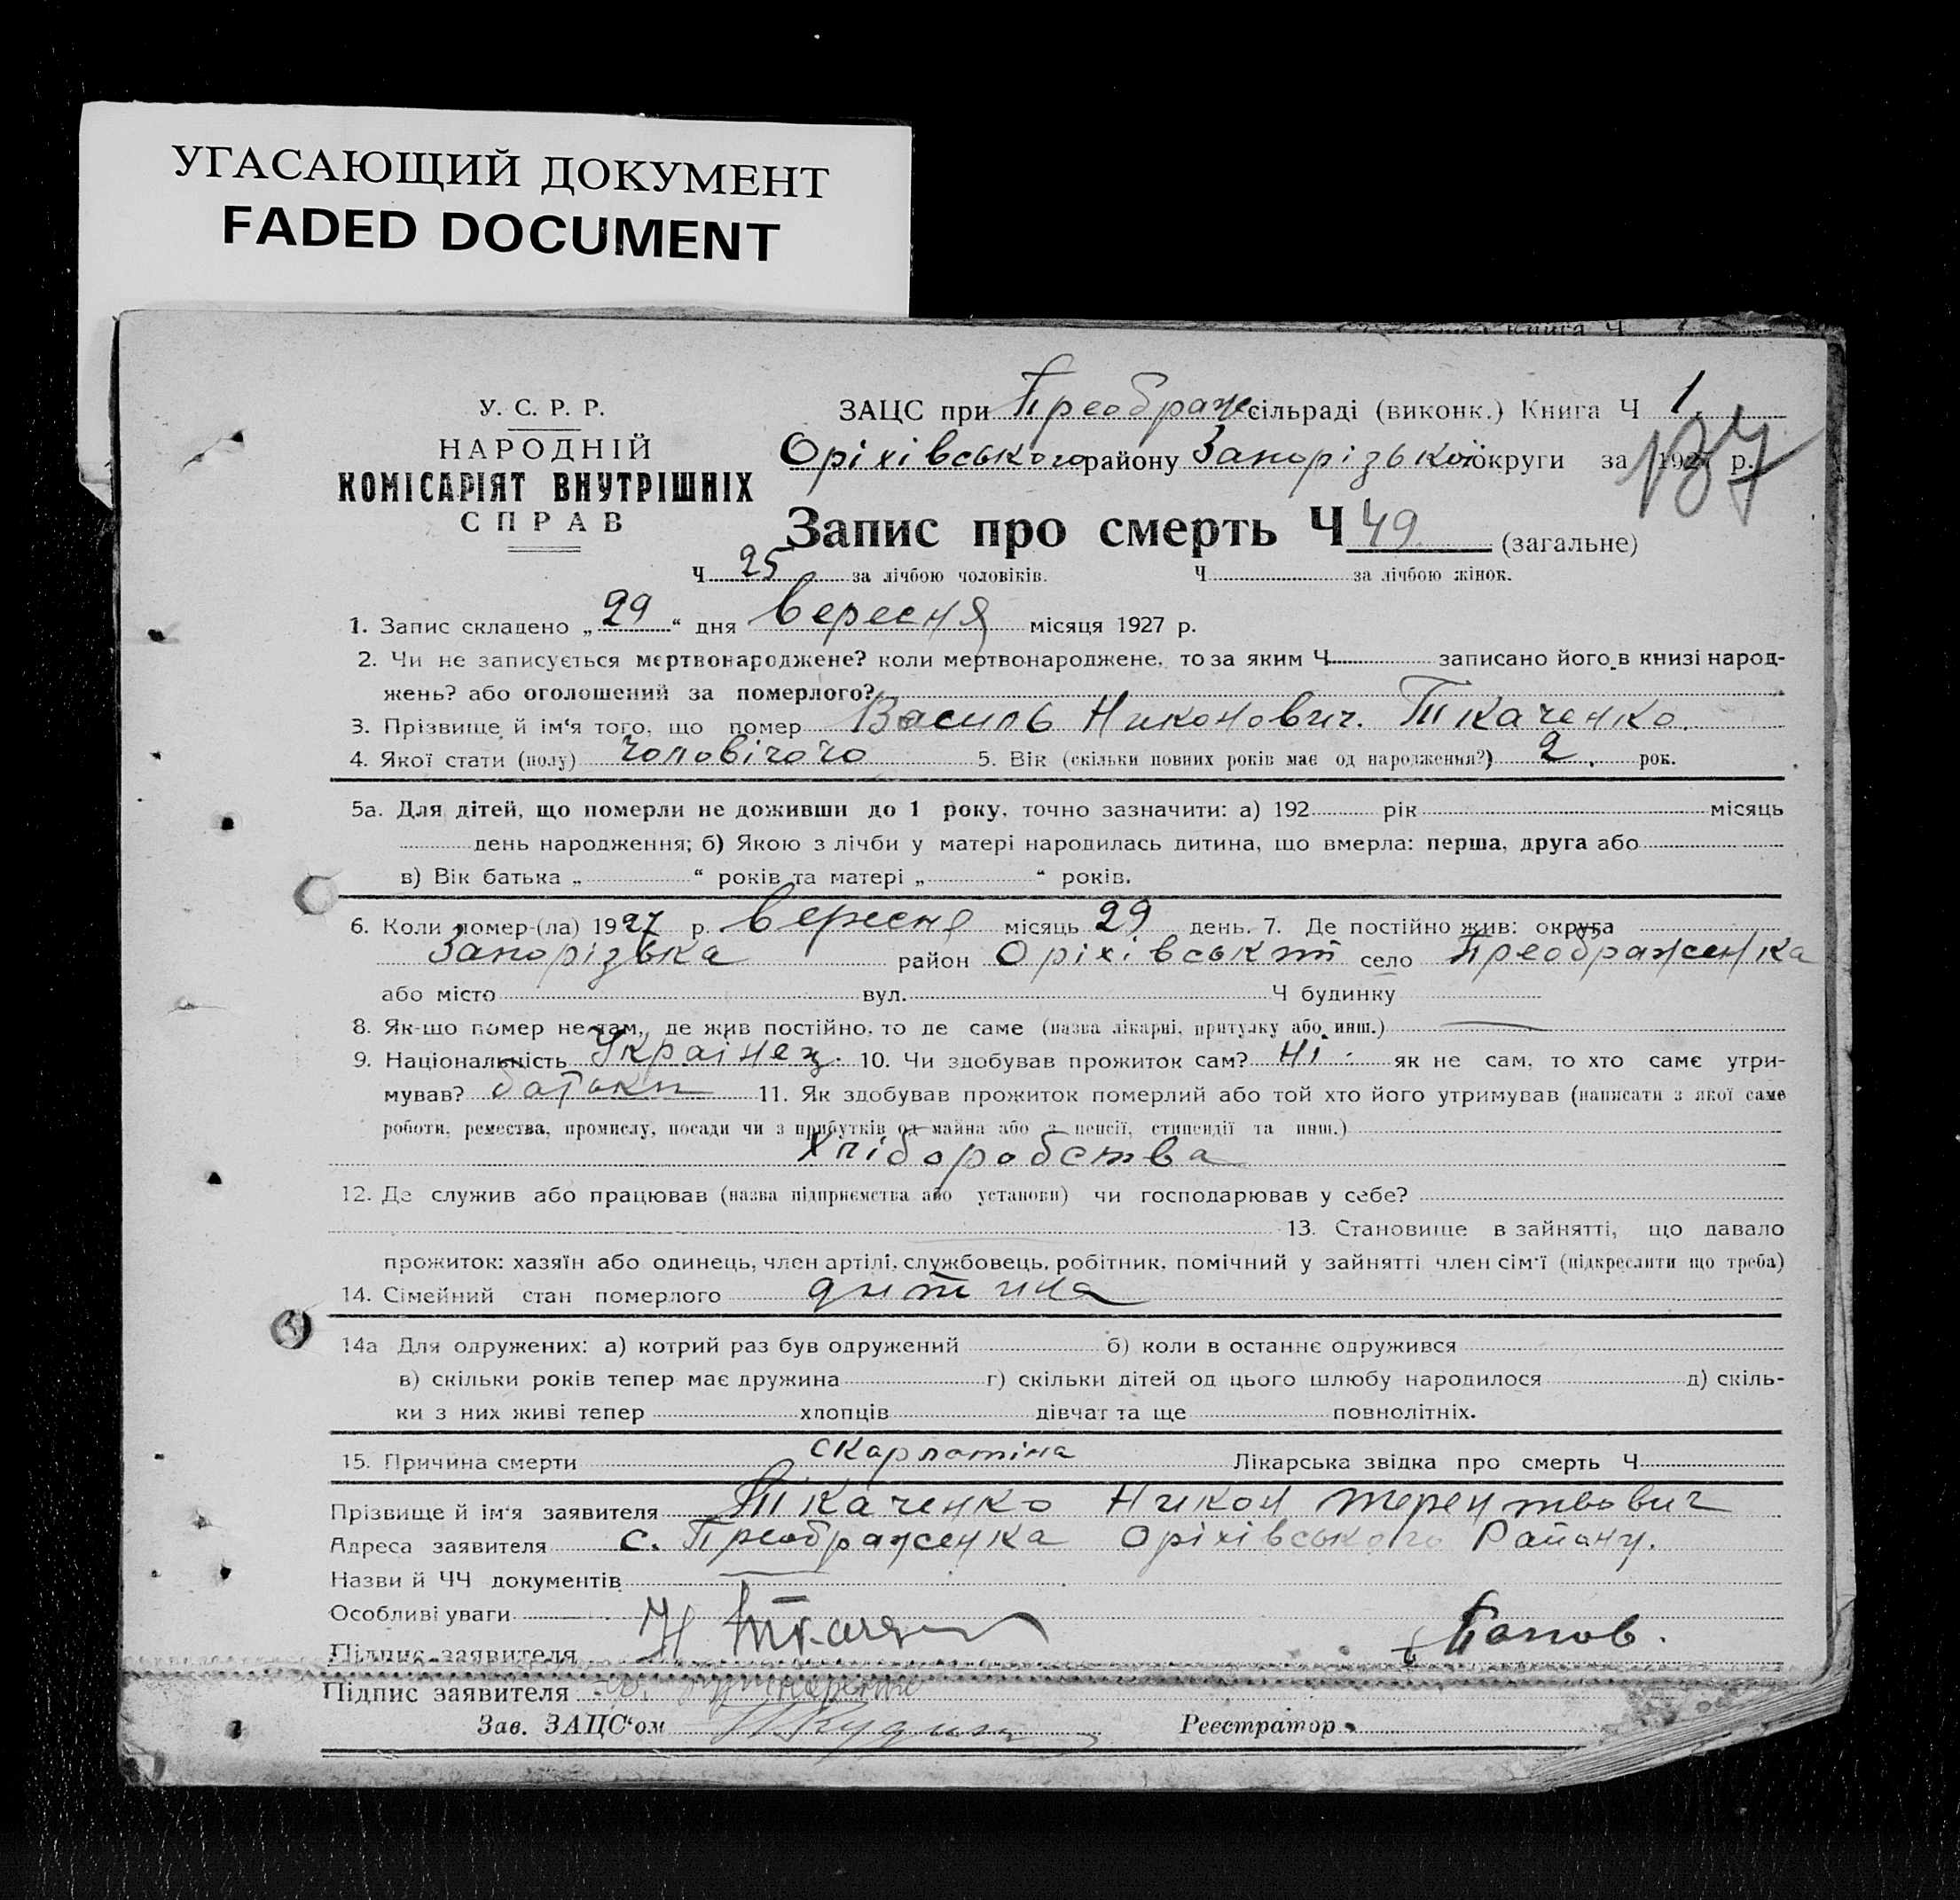 УГАСАЮЩИЙ ДОКУМЕНТ
FADED DOCUMENT
книга Ч
У. С. Р. Р.
НАРОДНІЙ
КОМІСАРІЯТ ВНУТРІШНІХ
СПРАВ
ЗАЦС при Преображ сільраді (виконк.) Книга Ч 1
Оріхівського району Запорізької округи за 1927 р.
137
Запис про смерть Ч 49 (загальне)
Ч 25 за лічбою чоловіків. Ч за лічбою жінок.
1. Запис складено „ 29 “ дня вересня місяця 1927 р.
2. Чи не записується мертвонароджене? коли мертвонароджене, то за яким Ч записано його в книзі народ-
жень? або оголошений за померлого?
3. Прізвище й ім‘я того, що помер Василь Никонович. Ткаченко.
4. Якої стати (полу) чоловічого 5. Вік (скільки повних років має од народження?) 2. рок.
5а. Для дітей, що померли не доживши до 1 року, точно зазначити: а) 192 рік місяць
день народження; б) Якою з лічби у матері народилась дитина, що вмерла: перша, друга або
в) Вік батька „ “ років та матері „ “ років.
6. Коли помер-(ла) 1927 р. вересня місяць 29 день. 7. Де постійно жив: округа
Запорізька район Оріхівськ село Преображенка
або місто вул. Ч будинку
8. Як-що помер не там, де жив постійно, то де саме (назва лікарні, притулку або инш.)
9. Національність Українец. 10. Чи здобував прожиток сам? Ні. як не сам, то хто саме утри-
мував? батьки 11. Як здобував прожиток померлий або той хто його утримував (написати з якої саме
роботи, ремества, промислу, посади чи з прибутків од майна або з пенсії, стипендії та инш.)
Хліборобства
12. Де служив або працював (назва підприємства або установи) чи господарював у себе?
13. Становище в зайнятті, що давало
прожиток: хазяїн або одинець, член артілі, службовець, робітник, помічний у зайнятті член сім‘ї (підкреслити що треба)
14. Сімейний стан померлого дитина
14а Для одружених: а) котрий раз був одружений б) коли в останнє одружився
в) скільки років тепер має дружина г) скільки дітей од цього шлюбу народилося д) скіль-
ки з них живі тепер хлопців дівчат та ще повнолітніх.
15. Причина смерти скарлатіна Лікарська звідка про смерть Ч
Прізвище й ім‘я заявителя Ткаченко Никон Терентьович
Адреса заявителя с. Преображенка Оріхівського Району.
Назви й ЧЧ документів
Особливі уваги
Підпис заявителя Н Ткачен Попов.
Підпис заявителя
Зав. ЗАЦС‘ом Реєстратор